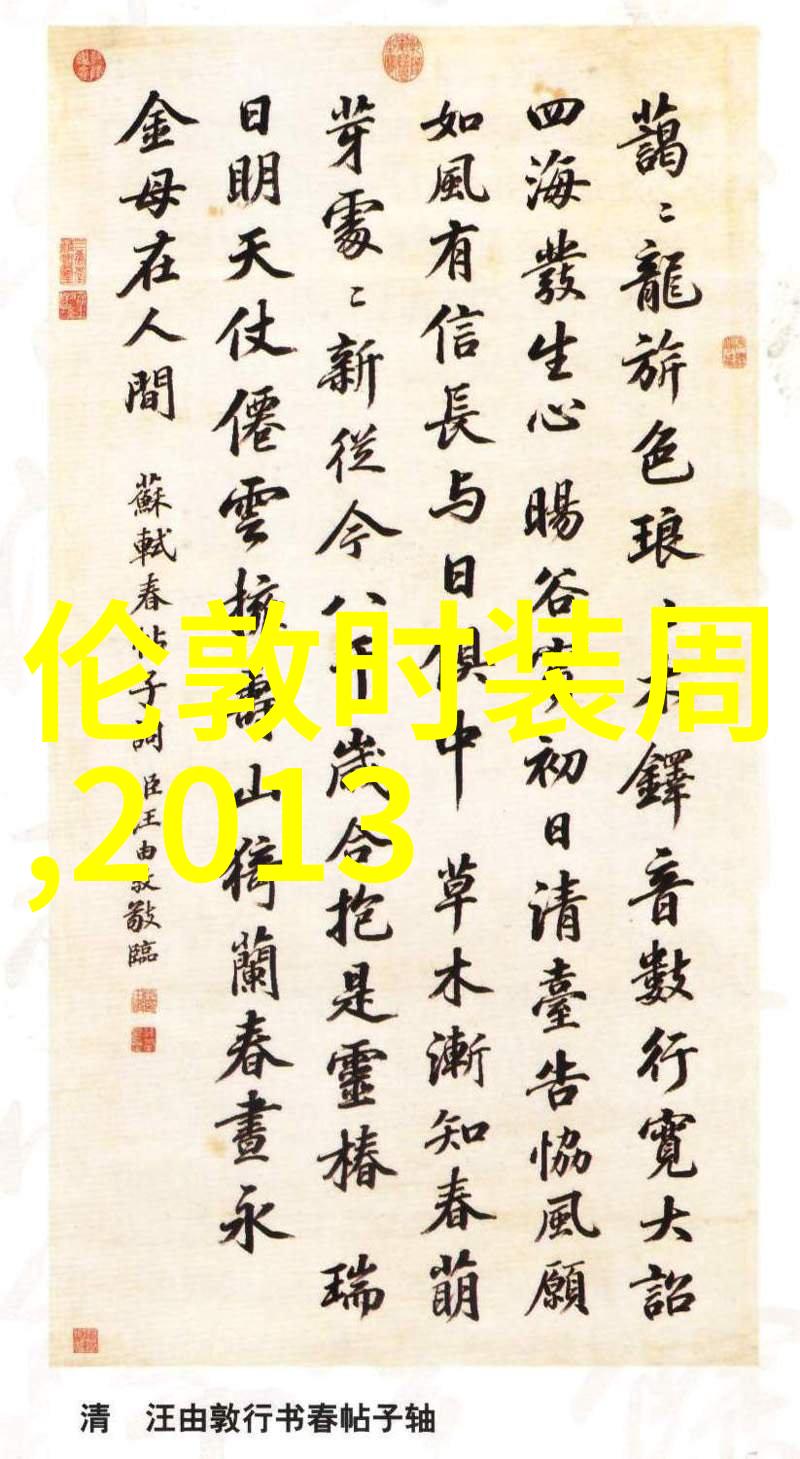 藹〻龍旂色琅〻木鐸音數行寬大詔
四海發生心 暘谷賓初日清臺告協風願
如風有信長与日俱中 草木漸知春萌
芽處〻新從今八千歲合抱是靈椿 瑞
日明天仗僊雲擁壽山猗蘭春晝永
金母在人間 蘇軾春帖子詞 臣汪由敦敬臨
伦敦时装周
,2013
清 汪由敦行书春帖子轴